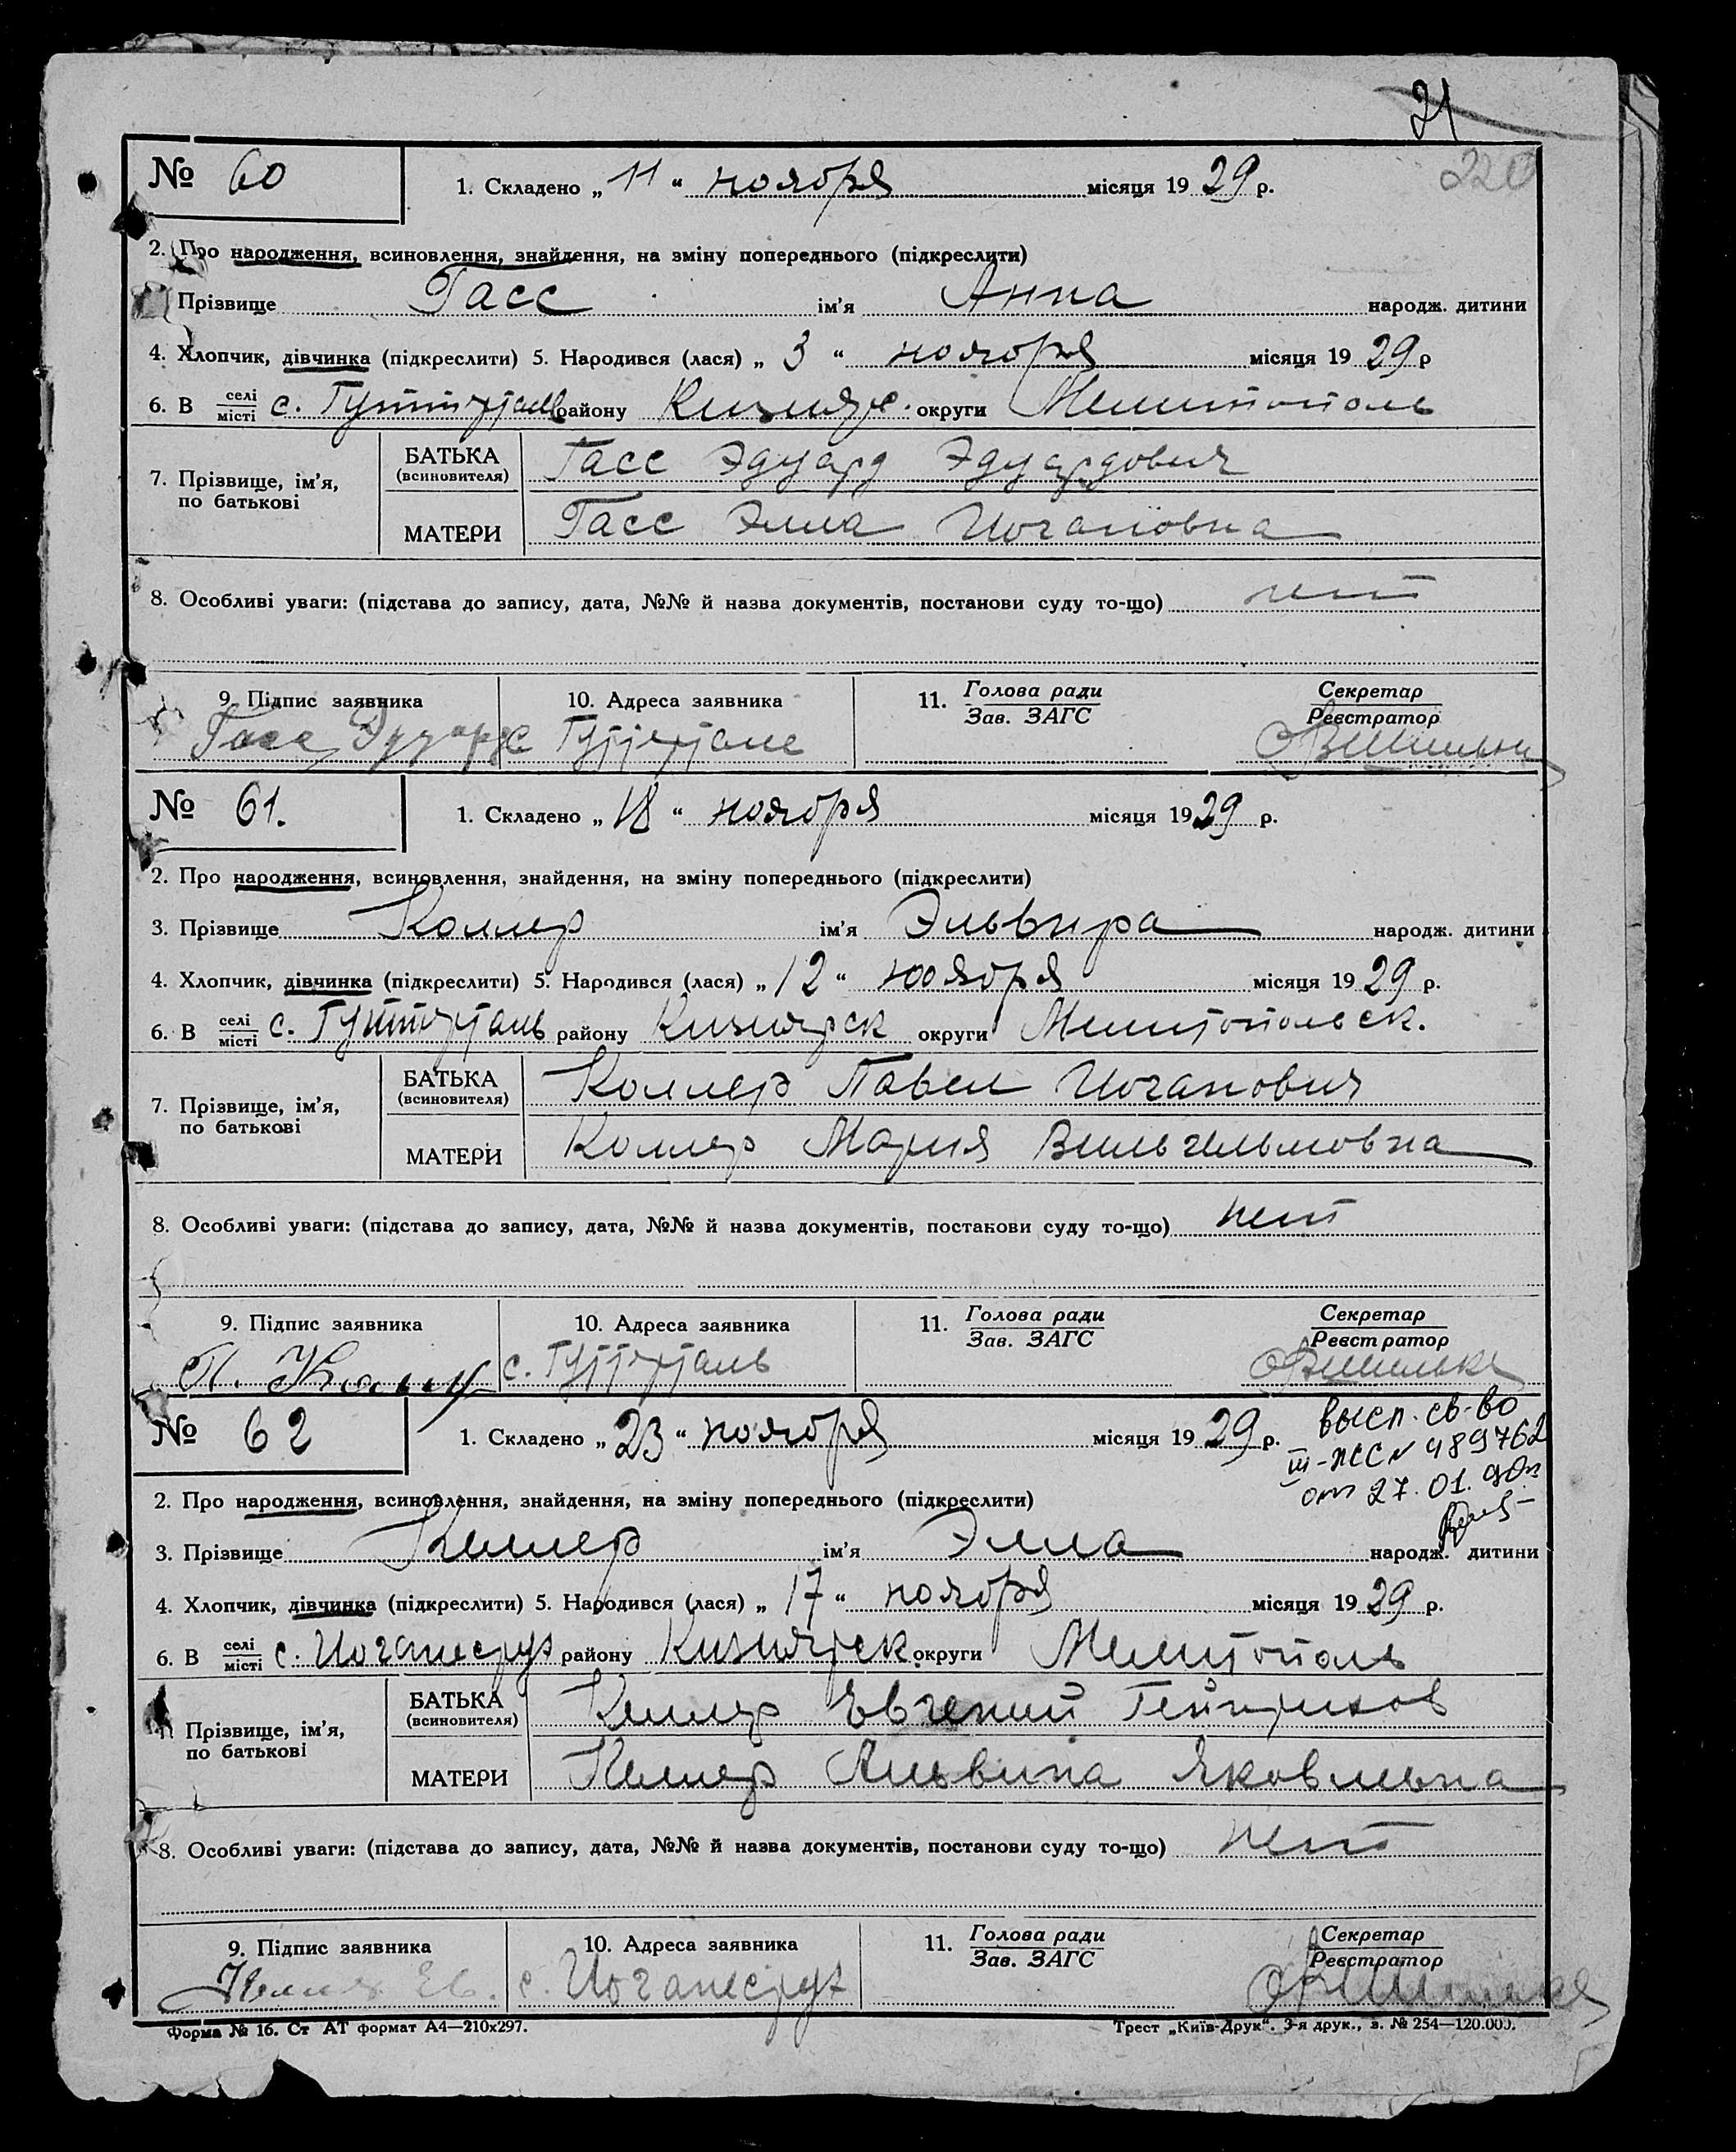 21
220
№ 60 1. Складено „11“ ноября місяця 1929 р.
2. Про народження, всиновлення, знайдення, на зміну попереднього (підкреслити)
Прізвище Гасс ім'я Анна народж. дитини
4. Хлопчик, дівчинка (підкреслити) 5. Народився (лася) „3“ ноября місяця 1929 р
6. В селі/місті с. Гуттерталь району Кизияр. округи Мелитополь
7. Прізвище, ім'я, по батькові
БАТЬКА (всиновителя) Гасс Эдуард Эдуардович
МАТЕРИ Гасс Элла Иогановна
8. Особливі уваги: (підстава до запису, дата, №№ й назва документів, постанови суду то-що) нет
9. Підпис заявника 10. Адреса заявника 11. Голова ради/Зав. ЗАГС Секретар/Реєстратор
Гасс Эдуард с Гуттерталь
№ 61. 1. Складено „18“ ноября місяця 1929 р.
2. Про народження, всиновлення, знайдення, на зміну попереднього (підкреслити)
3. Прізвище Коллер ім'я Эльвира народж. дитини
4. Хлопчик, дівчинка (підкреслити) 5. Народився (лася) „12“ ноября місяця 1929 р.
6. В селі/місті с. Гуттерталь району Кизиярск округи Мелитопольск.
7. Прізвище, ім'я, по батькові
БАТЬКА (всиновителя) Коллер Павел Иоганович
МАТЕРИ Коллер Мария Вильгельмовна
8. Особливі уваги: (підстава до запису, дата, №№ й назва документів, постанови суду то-що) нет
9. Підпис заявника 10. Адреса заявника 11. Голова ради/Зав. ЗАГС Секретар/Реєстратор
П. Коллер с. Гуттерталь
№ 62 1. Складено „23“ ноября місяця 1929 р.
высл. св-во
III-ЖС № 489762
от 27.01.
2. Про народження, всиновлення, знайдення, на зміну попереднього (підкреслити)
3. Прізвище Келлер ім'я Элла народж. дитини
4. Хлопчик, дівчинка (підкреслити) 5. Народився (лася) „17“ ноября місяця 1929 р.
6. В селі/місті с. Иоганесру району Кизиярск округи Мелитополь
Прізвище, ім'я, по батькові
БАТЬКА (всиновителя) Келлер Евгений Гейнрихов
МАТЕРИ Келлер Альвина Яковлевна
8. Особливі уваги: (підстава до запису, дата, №№ й назва документів, постанови суду то-що) нет
9. Підпис заявника 10. Адреса заявника 11. Голова ради/Зав. ЗАГС Секретар/Реєстратор
Келлер Ев. с. Иоганесру
Форма № 16. Ст АТ формат А4—210х297. Трест „Київ-Друк“. 3-я друк., з. № 254—120.000.